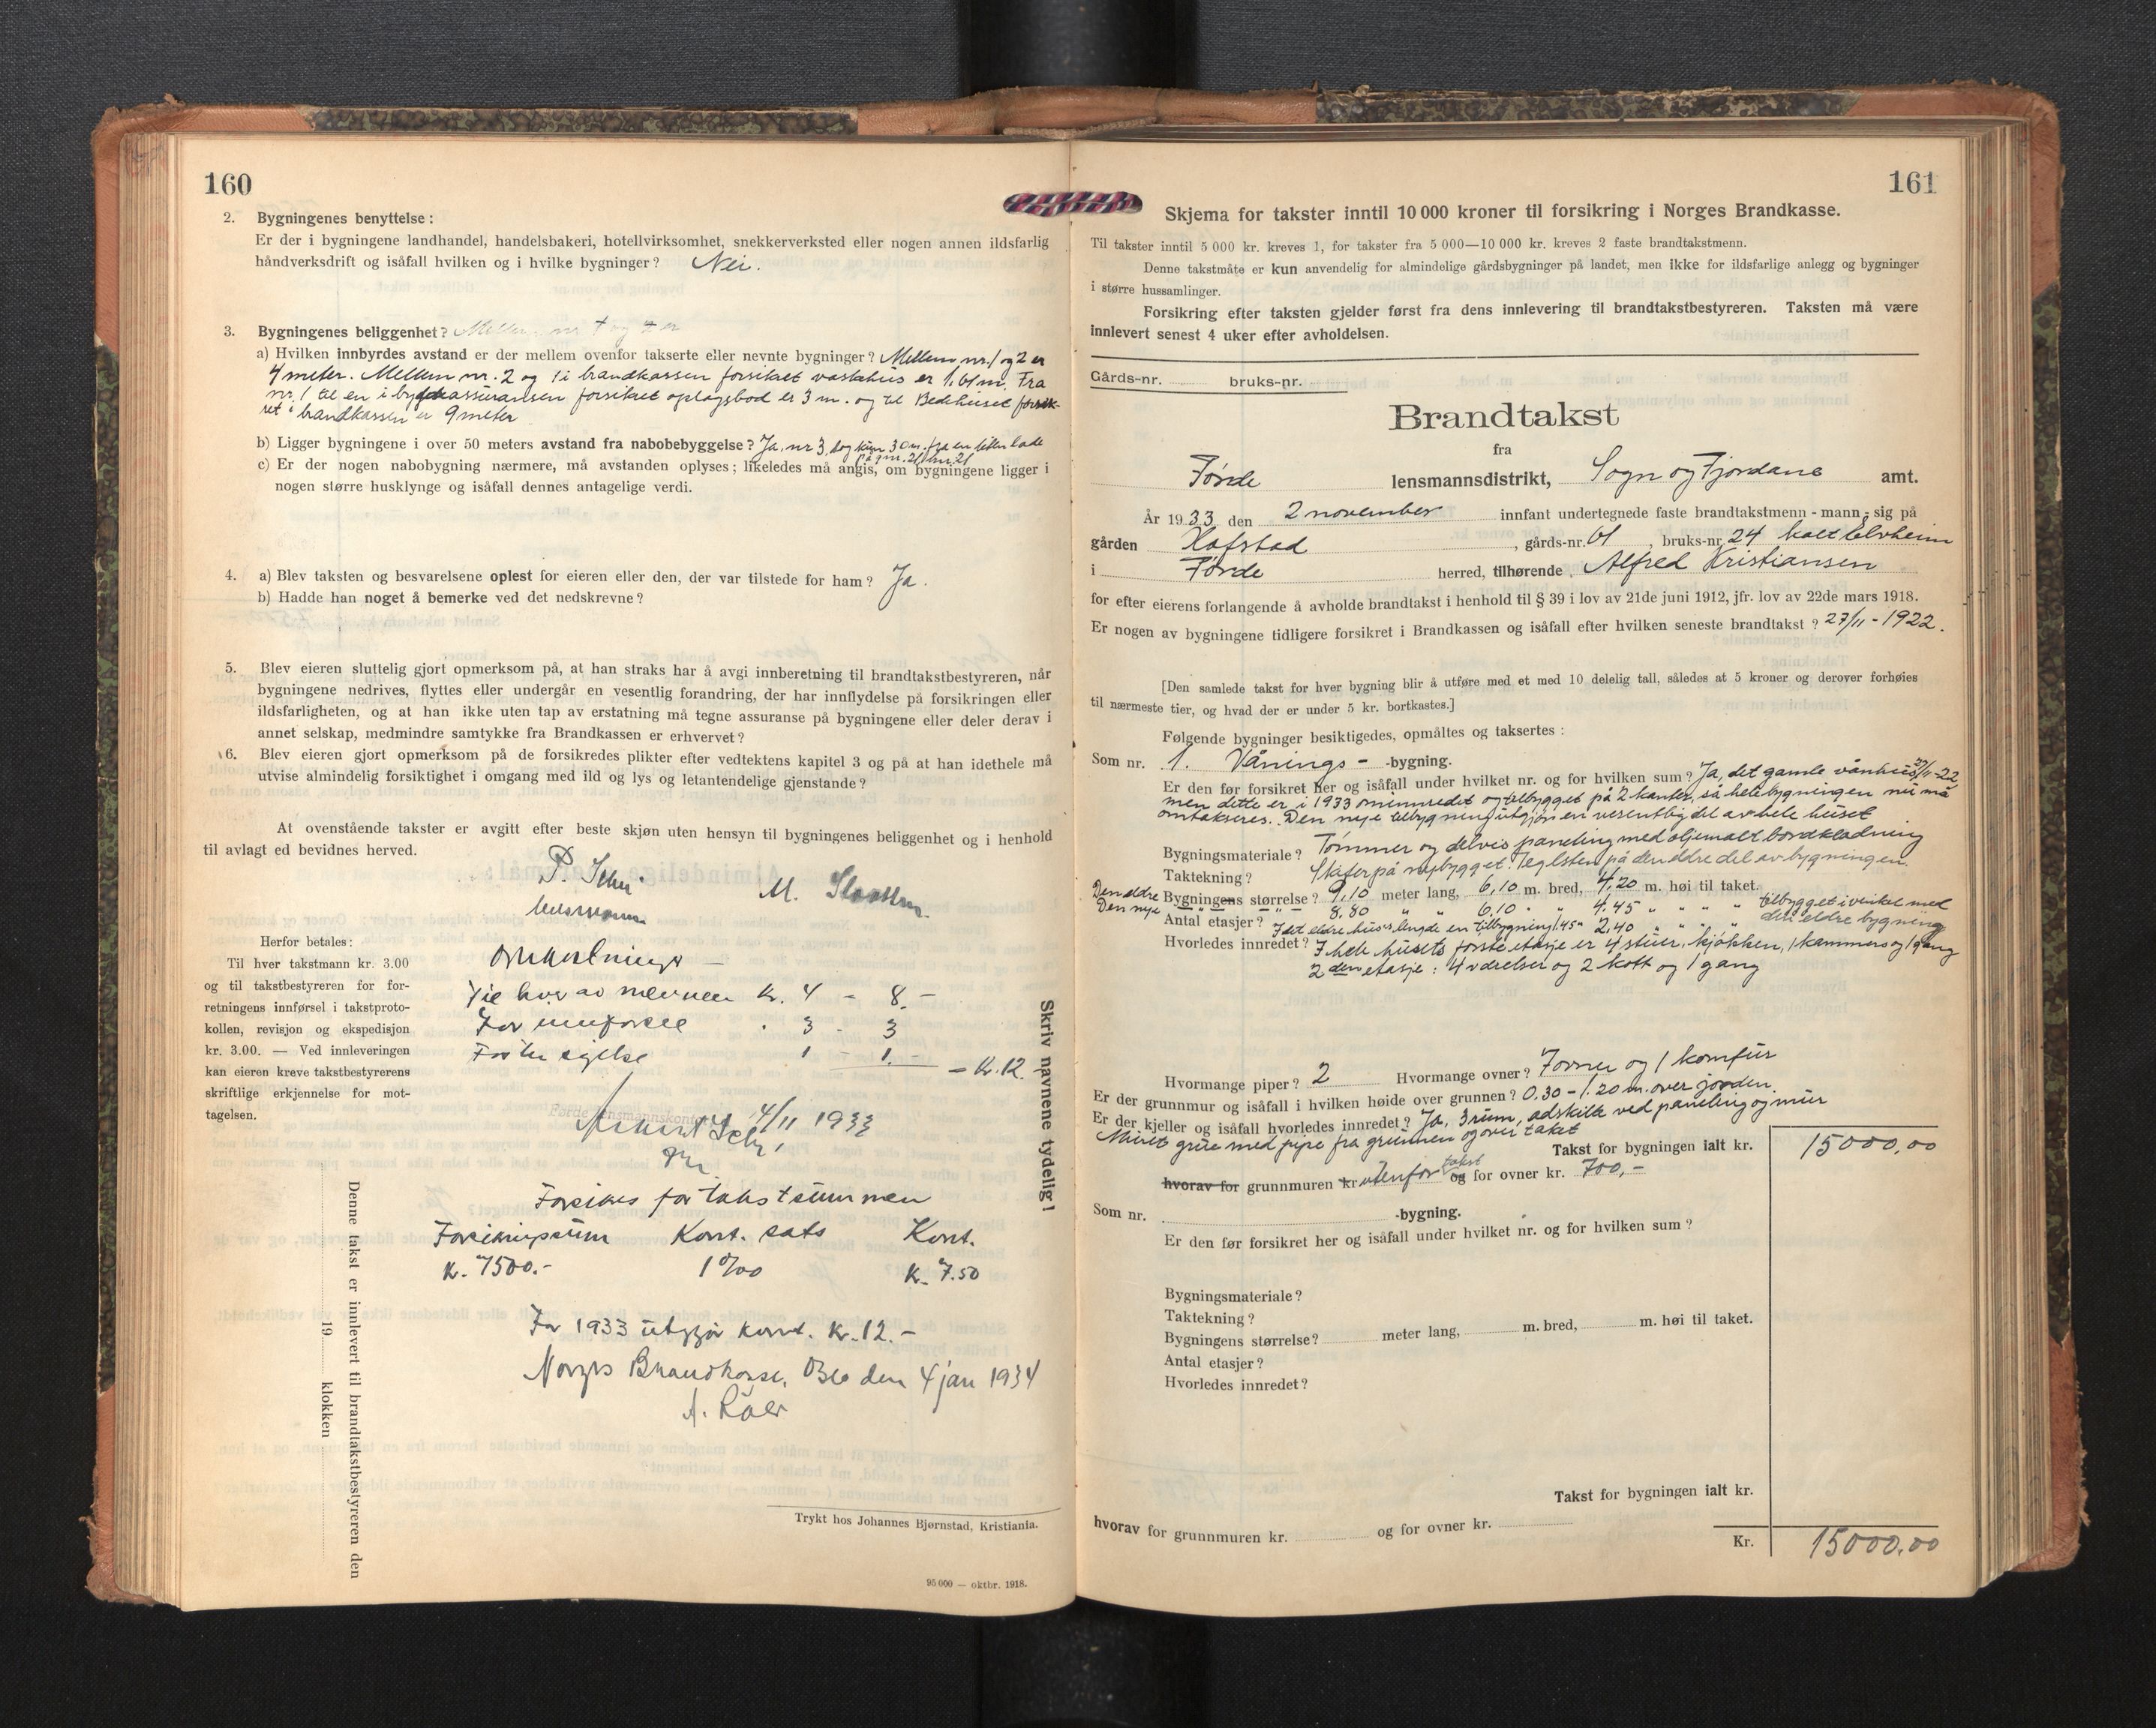 160
2. Bygningenes benyttelse:
Er der i bygningene landhandel, handelsbakeri, hotellvirksomhet, snekkerverksted eller nogen annen ildsfarlig
håndverksdrift og isåfall hvilken og i hvilke bygninger? Nei.
3. Bygningenes beliggenhet?
a) Hvilken innbyrdes avstand er der mellem ovenfor takserte eller nevnte bygninger? Mellem nr. 1 og 2 er
4 meter. Mellem nr. 2 og 1 i brandkassen forsikret vaskehus er m. Fra
nr. 1 til en i bygdeassuransen forsikret oplagsbod er 3 m. og til Bedehuset forsik-
ret i brandkassen er 9 meter
b) Ligger bygningene i over 50 meters avstand fra nabobebyggelse? Ja, nr 3, dog kun 30 m. fra en liten lade
på g.nr. 21
c) Er der nogen nabobygning nærmere, må avstanden oplyses; likeledes må angis, om bygningene ligger i
nogen større husklynge og isåfall dennes antagelige verdi.
4. a) Blev taksten og besvarelsene oplest for eieren eller den, der var tilstede for ham? Ja.
b) Hadde han noget å bemerke ved det nedskrevne?
5. Blev eieren sluttelig gjort opmerksom på, at han straks har å avgi innberetning til brandtakstbestyreren, når
bygningene nedrives, flyttes eller undergår en vesentlig forandring, der har innflydelse på forsikringen eller
ildsfarligheten, og at han ikke uten tap av erstatning må tegne assuranse på bygningene eller deler derav i
annet selskap, medmindre samtykke fra Brandkassen er erhvervet?
6. Blev eieren gjort opmerksom på de forsikredes plikter efter vedtektens kapitel 3 og på at han idethele må
utvise almindelig forsiktighet i omgang med ild og lys og letantendelige gjenstande?
At ovenstående takster er avgitt efter beste skjøn uten hensyn til bygningenes beliggenhet og i henhold
til avlagt ed bevidnes herved.
P.
M.
Herfor betales:
Til hver takstmann kr. 3.00
og til takstbestyreren for for-
retningens innførsel i takstproto-
kollen, revisjon og ekspedisjon
kr. 3.00. — Ved innleveringen
kan eieren kreve takstbestyrerens
skriftlige erkjennelse for mot-
tagelsen.
Omkostninger —
Til hver av mennene kr. 4 - 8.-
For innførsel . 3 - 3
1 - 1.-
= Kr. 12.
Førde lensmannskontor 4/11 1933
Skriv navnene tydelig!
Forsikres for takstsummen
Forsikringssum Kont. sats Kont.
kr. 7500.- 1 ‰ kr. 7.50
For 1933 utgjør kont. kr. 12.-
Norges Brandkasse, Oslo den 4 jan 1934
Denne takst er innlevert til brandtakstbestyreren den
19 klokken
Trykt hos Johannes Bjørnstad, Kristiania.
95 000 — oktbr. 1918.
161
Skjema for takster inntil 10 000 kroner til forsikring i Norges Brandkasse.
Til takster inntil 5 000 kr. kreves 1, for takster fra 5 000—10 000 kr. kreves 2 faste brandtakstmenn.
Denne takstmåte er kun anvendelig for almindelige gårdsbygninger på landet, men ikke for ildsfarlige anlegg og bygninger
i større hussamlinger.
Forsikring efter taksten gjelder først fra dens innlevering til brandtakstbestyreren. Taksten må være
innlevert senest 4 uker efter avholdelsen.
Gårds-nr. bruks-nr.
Brandtakst
fra
Førde lensmannsdistrikt, Sogn og Fjordane amt.
År 1933 den 2 november innfant undertegnede faste brandtakstmenn - mann - sig på
gården Hafstad, gårds-nr. 61, bruks-nr. 24 kalt Elvheim
i Førde herred, tilhørende Alfred Kristiansen
for efter eierens forlangende å avholde brandtakst i henhold til § 39 i lov av 21de juni 1912, jfr. lov av 22de mars 1918.
Er nogen av bygningene tidligere forsikret i Brandkassen og isåfall efter hvilken seneste brandtakst? 27/11 - 1922.
[Den samlede takst for hver bygning blir å utføre med et med 10 delelig tall, således at 5 kroner og derover forhøies
til nærmeste tier, og hvad der er under 5 kr. bortkastes.]
Følgende bygninger besiktigedes, opmåltes og taksertes:
Som nr. 1. Vånings- -bygning.
Er den før forsikret her og isåfall under hvilket nr. og for hvilken sum? Ja, det gamle vånhus 27/11-22
men dette er i 1933 ominnredet og tilbygget på 2 kanter, så hele bygningen nu må
omtakseres. Den nye tilbygning utgjør en vesentlig del av hele huset
Bygningsmateriale? Tømmer og delvis paneling med oljemalt bordkledning
Taktekning? Skifer på nybygget. Teglsten på den eldre del av bygningen.
Den eldre Bygningens størrelse? 9,10 meter lang, 6,10 m. bred, 4,20 m. høi til taket.
Den nye " " 8.80 " " 6.10 " " 4.45 " " " " tilbygget i vinkel med
den eldre bygning
Antal etasjer? I det eldre huses lengde en tilbygning 1.45 " 2.40 " " " "
Hvorledes innredet? I hele husets første etasje er 4 stuer, kjøkken, 1 kammers og 1 gang
2den etasje: 4 værelser og 2 kott og 1 gang
Hvormange piper? 2 Hvormange ovner? 7 ovner og 1 komfur
Er der grunnmur og isåfall i hvilken høide over grunnen? 0.30 - 1.20 m. over jorden.
Er der kjeller og isåfall hvorledes innredet? Ja, 3 rum, adskilte ved paneling og mur
Muret grue med pipe fra grunnen og over taket
Takst for bygningen ialt kr. 15000,00
hvorav for grunnmuren kr utenfor takst og for ovner kr. 700,-
Som nr. -bygning.
Er den før forsikret her og isåfall under hvilket nr. og for hvilken sum?
Bygningsmateriale?
Taktekning?
Bygningens størrelse? meter lang, m. bred, m. høi til taket.
Antal etasjer?
Hvorledes innredet?
Takst for bygningen ialt kr.
hvorav for grunnmuren kr. og for ovner kr.
Kr. 15000,00